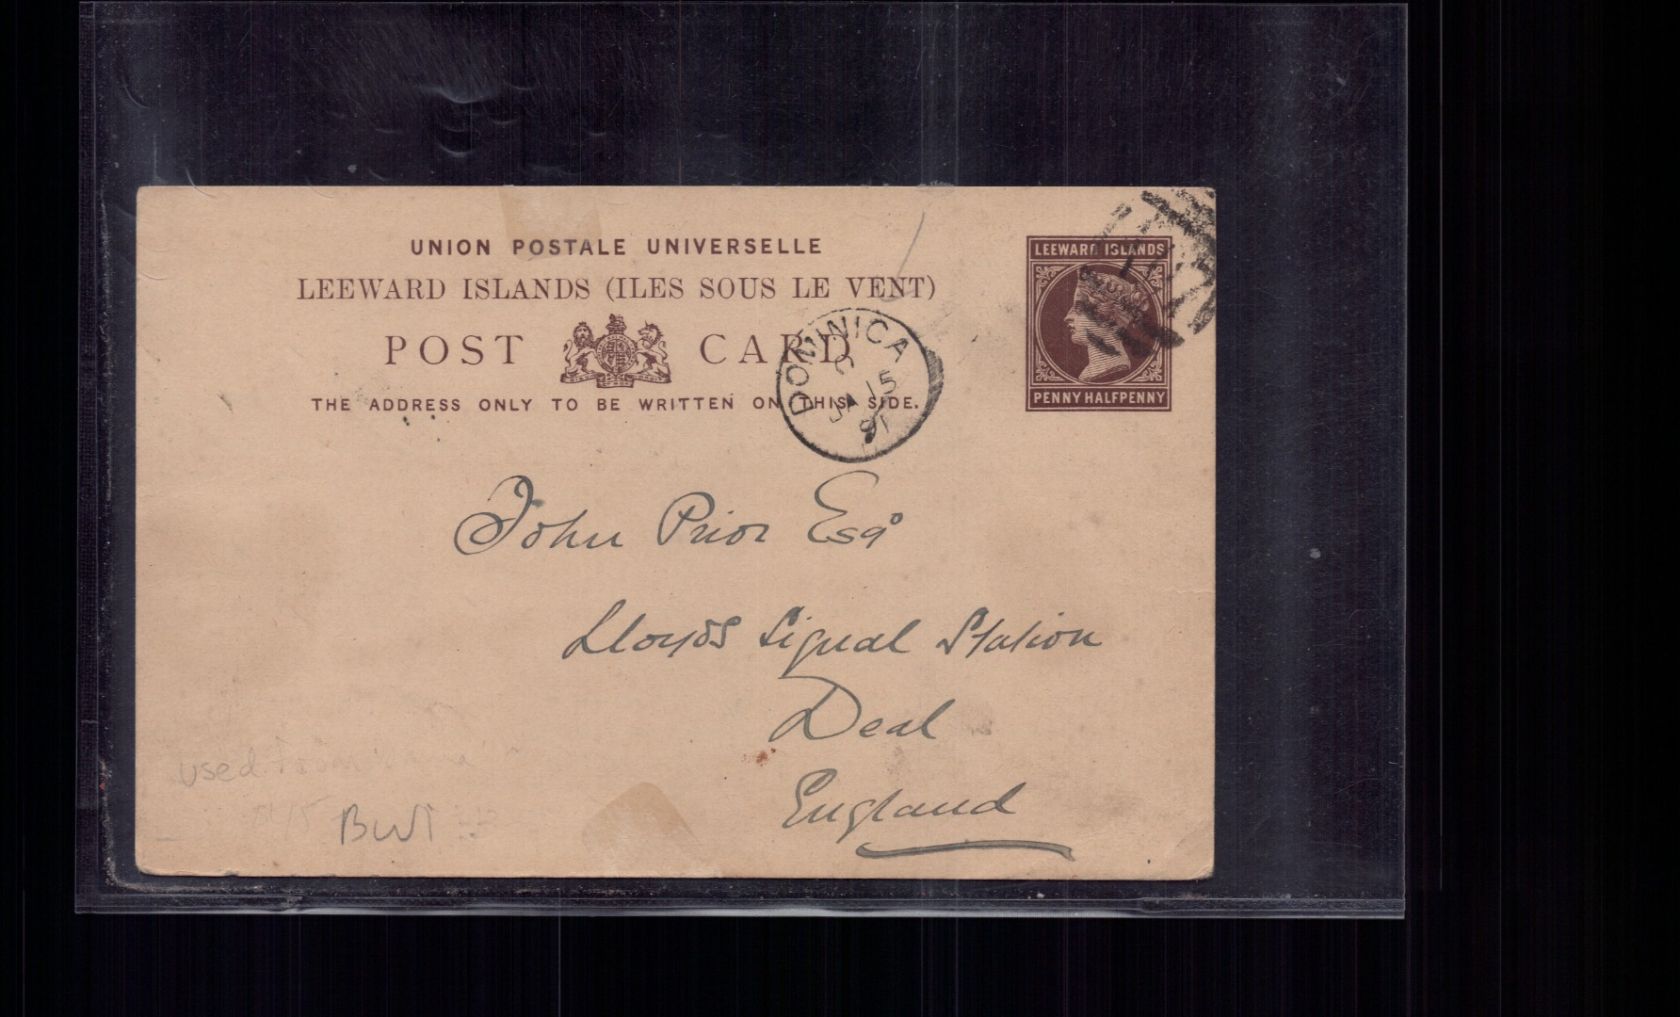 UNION POSTALE UNIVERSELLE
LEEWARD ISLANDS (ILES SOUS LE VENT)
POST CARD
THE ADDRESS ONLY TO BE WRITTEN ON THIS SIDE.
LEEWARD ISLANDS
PENNY HALFPENNY
DOMINICA
C
15
JA
91
John Prior Esqº
Lloyds Signal Station
Deal
England
used from
BWI